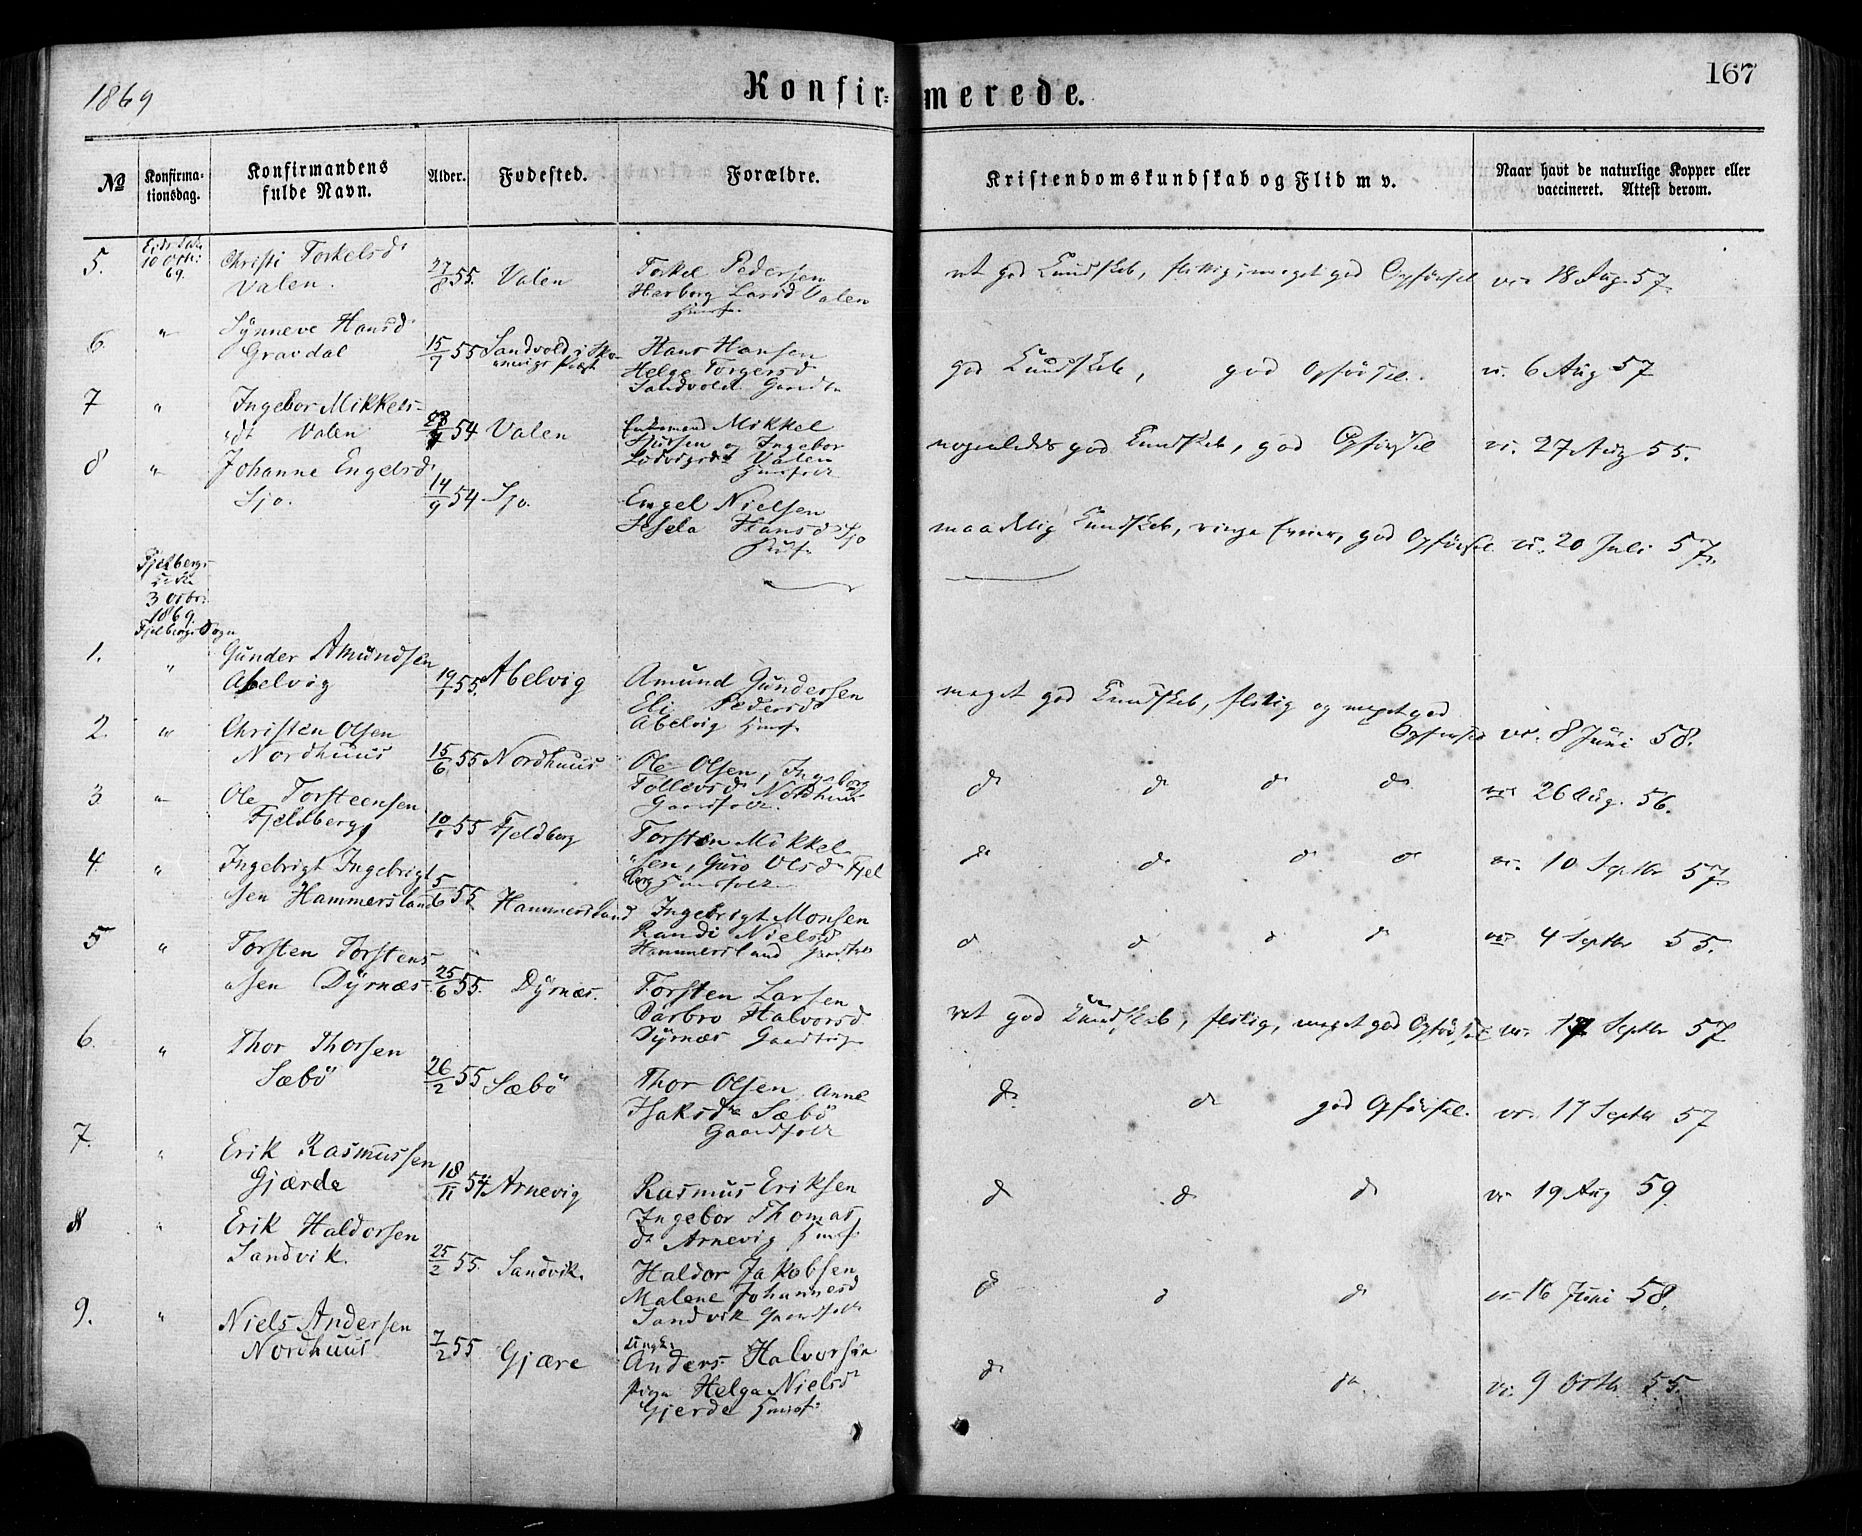 1869
Konfir-merede.
167
No
Konfirma-
tionsdag.
Konfirmandens
fulde Navn.
Alder.
Fødested.
Forældre.
Kristendomskundskab og Flid m v.
Naar havt de naturlige Kopper eller
vaccineret. Attest derom.
5.
10 Octr:
69.
Christi Torkelsdr
Valen.
27/8 55. Valen
Torkel Pedersen
Herborg Larsd Valen
ret god Kundskab, flittig, meget god Opførsel
18 Aug. 57.
6. "
Synneve Hansd
Gravdal
15/7 55 Sandvold i
Hans Hansen
Helge Torgersd
Sandvold
god Kundskab, god Opførsel.
v. 6 Aug 57
7 "
Ingebor Mikkels-
dt Valen
54 Valen
Mikkel
og Ingebor
Valen
nogenledes god Kundskab, god Opførsel
v. 27 Aug 55.
8 "
Johanne Engelsd
Sjo.
14/9 54 Sjo.
Engel Nielsen
Sesela Hansd Sjo
maadelig Kundskab, ringe god Opførsel
v. 20 Juli 57.
Fjelbergs
3 Octbr:
1869.
Fjelbergs Sogn
1. "
Gunder Amundsen
Abelvig
19/1 55. Abelvig
Amund Gundersen
Eli Pedersd
Abelvig
meget god Kundskab, flittig og meget god
Opførsel
v. 8 Juni 58.
2. "
Christen Olsen
Nordhuus
15/6 55 Nordhuus
Ole Olsen, Ingeborg
Tollevsd Nordhuus
Gaardfolk.
d d d d
26 Aug. 56.
3 "
Ole Torsteensen
Fjeldberg
55 Fjeldberg
Torsten Mikkel
sen, Guro Olsd Fjel
berg Huusfolk
d d d d
v. 10 Septbr 57.
4. "
Ingebrigt Ingebrigt
sen Hammersland
5/6 55. Hammersland
Ingebrigt Monsen
Randi Nielsd
Hammersland
d d d d
4 Septbr 55.
5 "
Torsten Torstens
sen Dyrnæs
25/6 55. Dyrnæs.
Torsten Larsen
Barbro Halvorsd
Dyrnæs
ret god Kundskab, flittig, meget god Opførsel
Septbr 57
6. "
Thor Thorsen
Sæbö
26/2 55 Sæbö
Thor Olsen Anne
Isaksdtr Sæbö
Gaardfolk
d d god Opførsel.
v. 17 Septbr 57
7. "
Erik Rasmussen
Gjærde
18/11 54 Arnevig
Rasmus Eriksen
Ingebor Thomas
dt Arnevig
d d d
v 19 Aug 59.
8 "
Erik Haldorsen
Sandvik.
25/2 55. Sandvik.
Haldor Jakobsen
Malene Johannesd
Sandvik Gaardfolk
d d d
v 16 Juni 58.
9. "
Niels Andersen
Nordhuus
7/2 55 Gjære
Ungk.
Anders Halvorsen
Pige Helga Nielsd
Gjerde
d d
v. 9 Octbr 55.